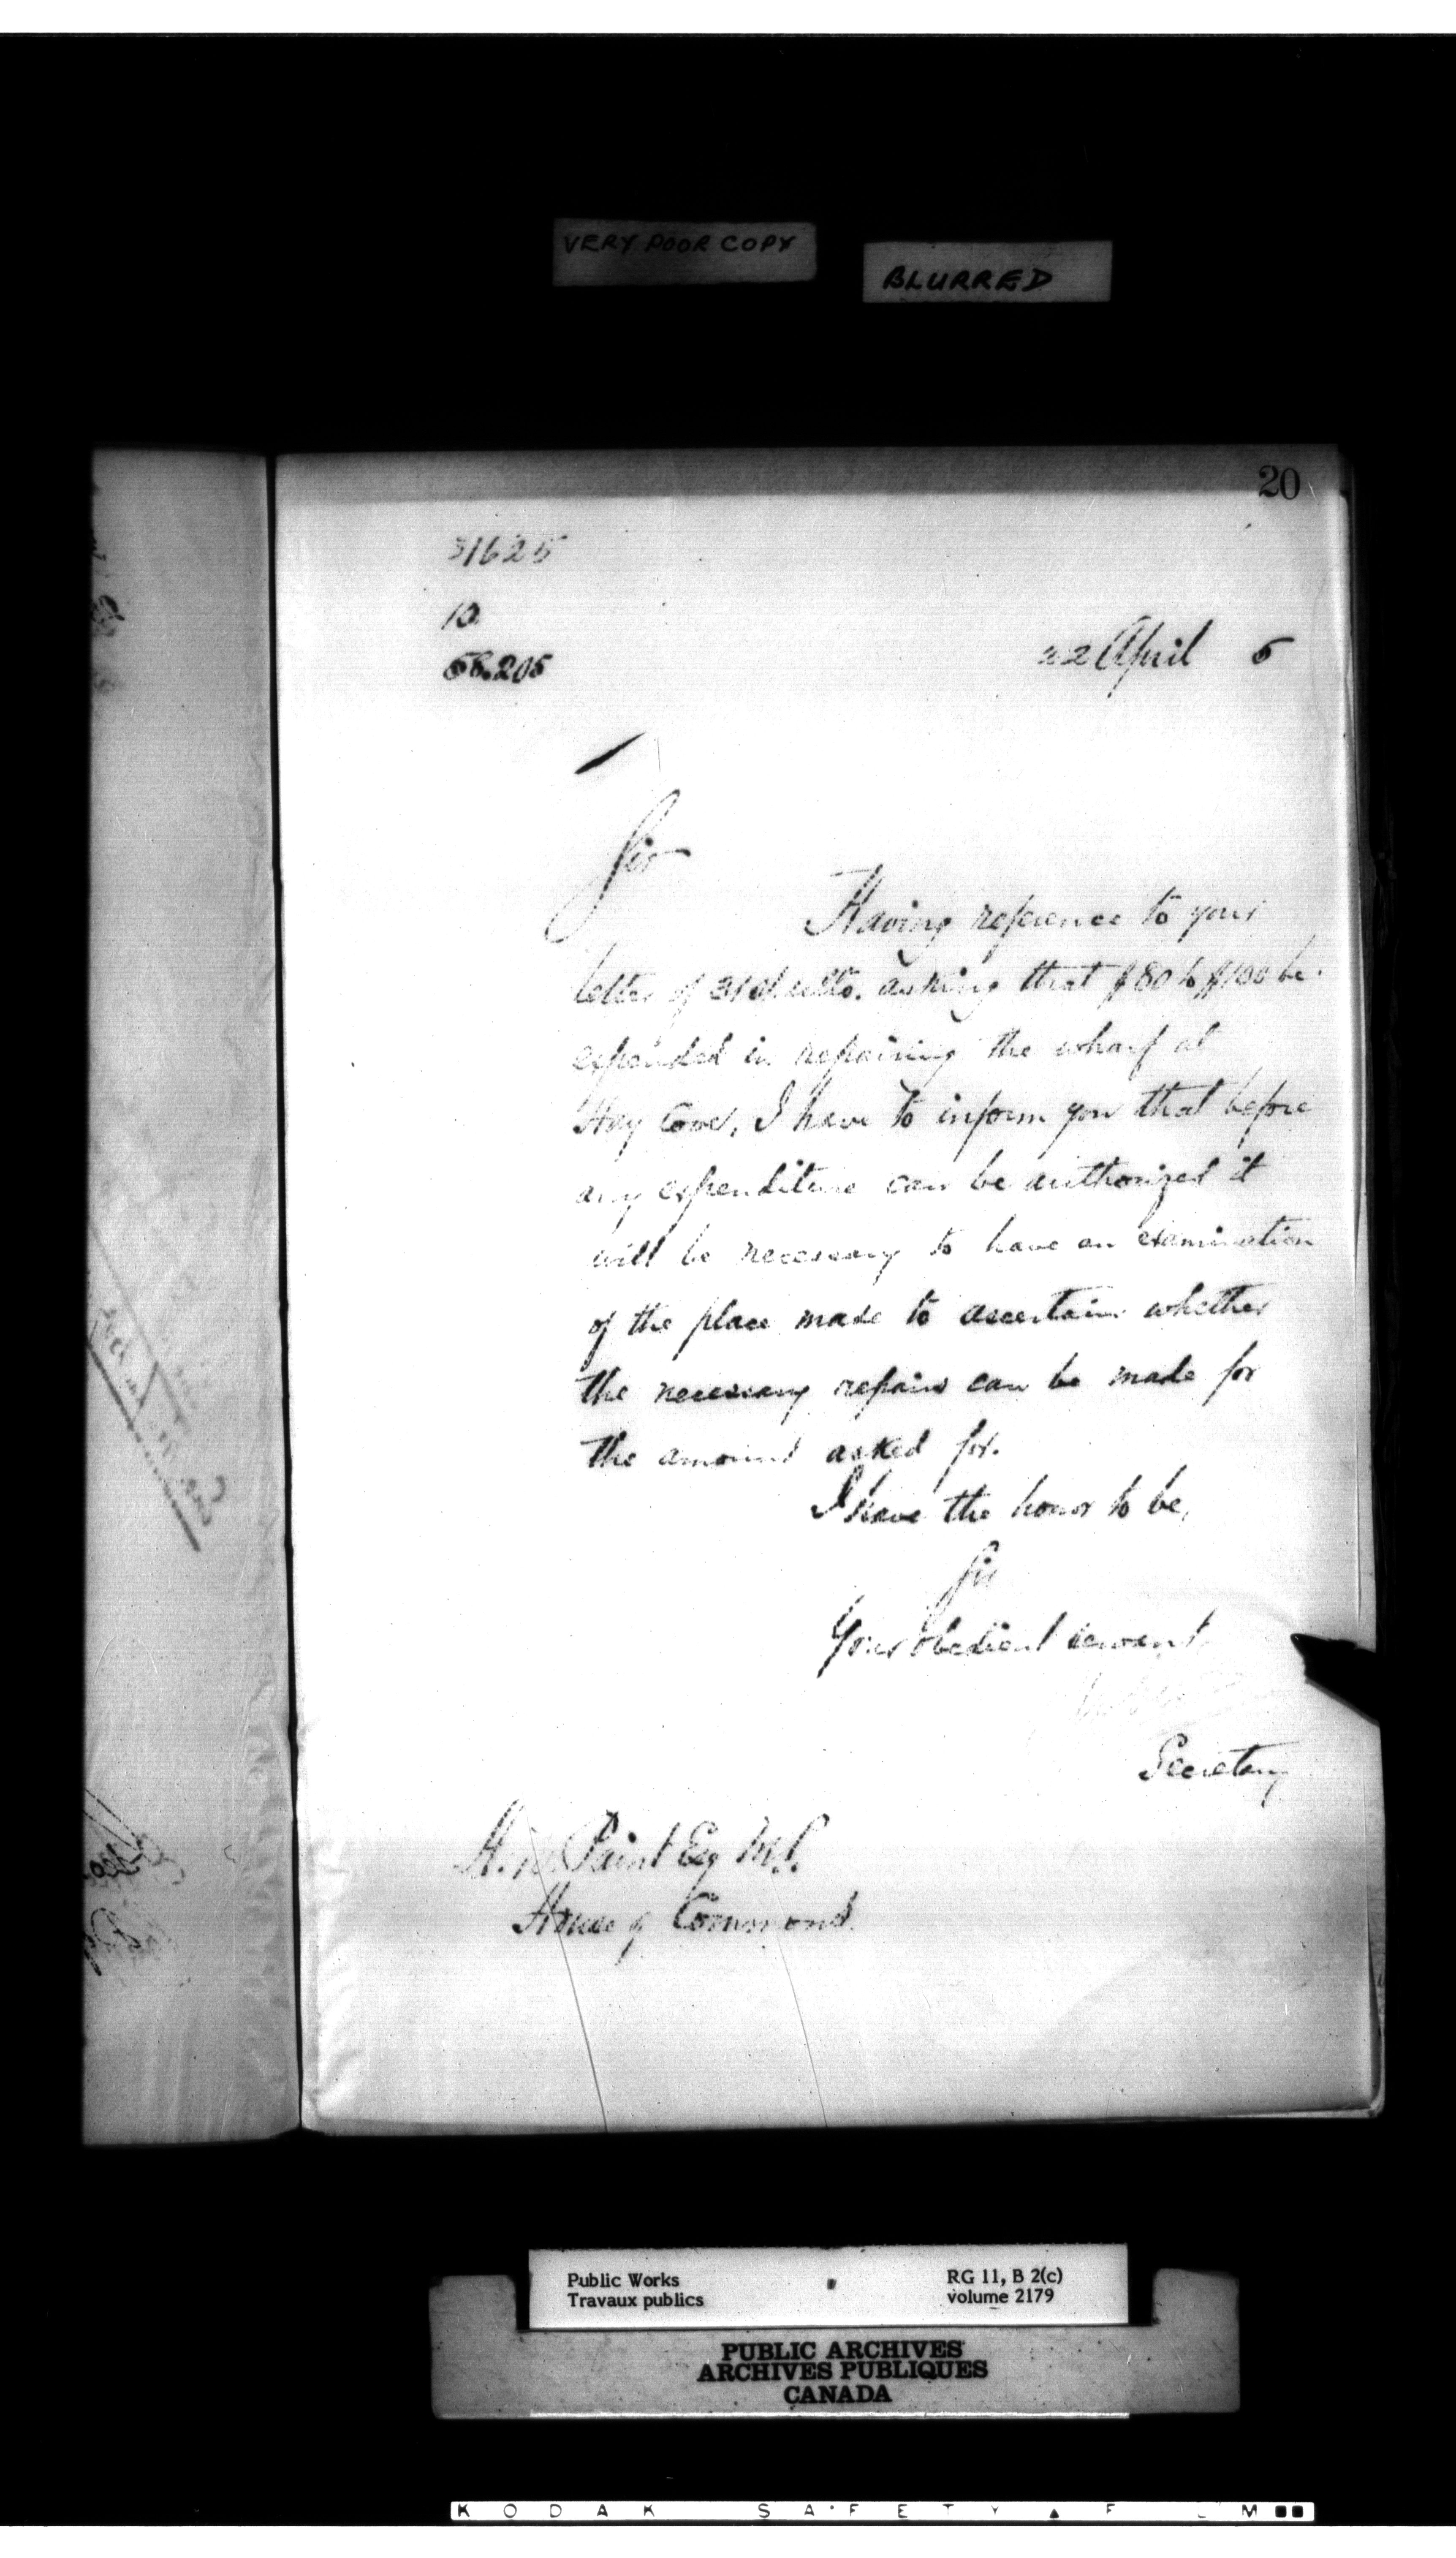 VERY POOR COPY
BLURRED
20
51625
10
56205
22 April 5
Sir
Having reference to your
letter of 31st ulto. asking that $80 to $100 be
expended in repairing the wharf at
Hay Cove, I have to inform you that before
any expenditure can be authorized it
will be necessary to have an examination
of the place made to ascertain whether
the necessary repairs can be made for
the amount asked for.
I have the honor to be,
Sir
Your obedient servant
Secretary
H. N. Paint Esq M.P.
House of Commons.
Public Works
Travaux publics
RG 11, B 2(c)
volume 2179
PUBLIC ARCHIVES
ARCHIVES PUBLIQUES
CANADA
KODAK SAFETY F M